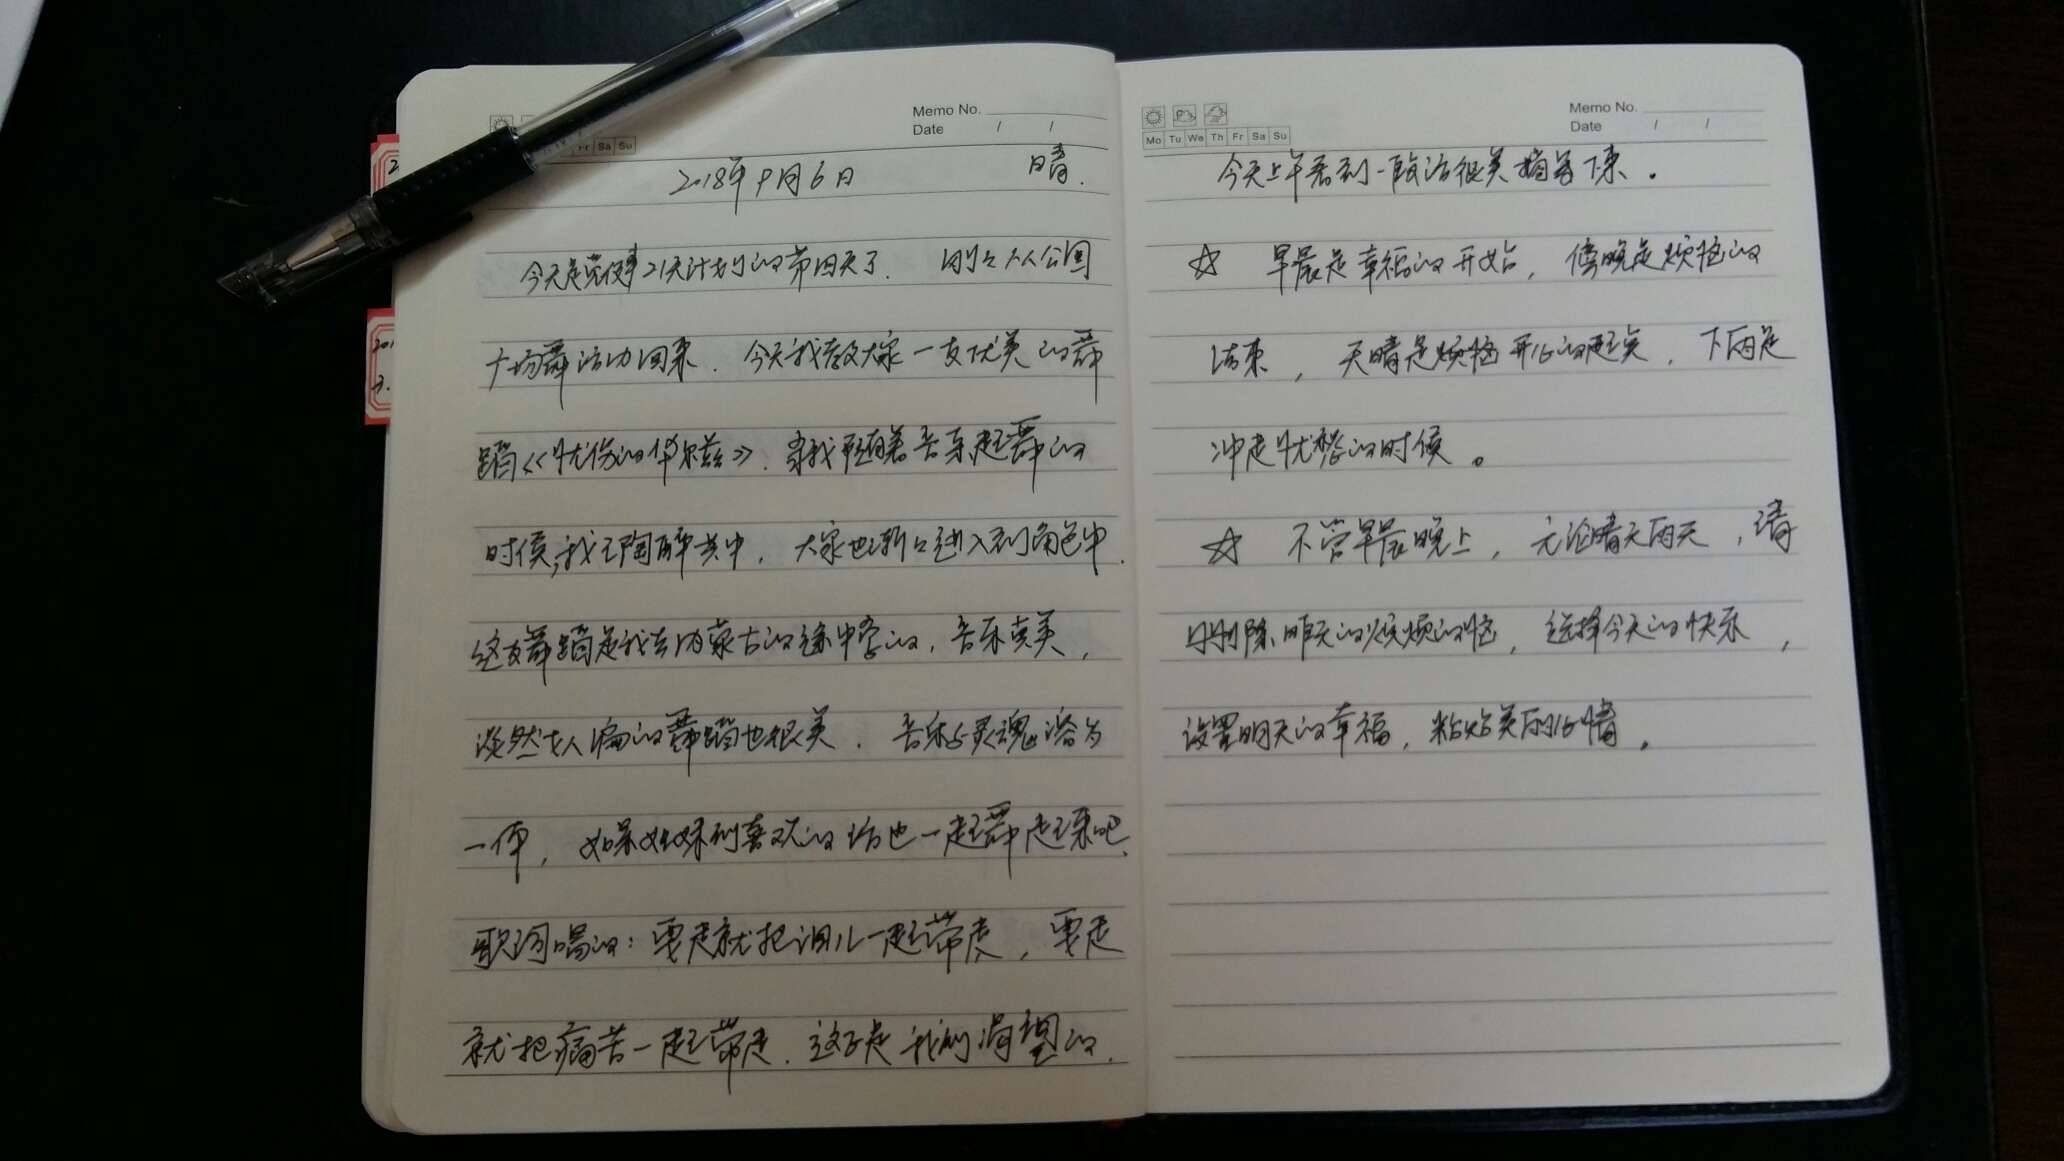 Memo No.
Date / /
Fr Sa Su
2018年9月6日 晴.
今天是 21天计划的第四天了. 刚刚从公园
广场舞活动回来. 今天我教大家一支优美的舞
蹈《忧伤的华尔兹》. 当我随着音乐起舞的
时候,我已陶醉其中, 大家也渐渐进入到角色中.
这支舞蹈是我去内蒙古的途中学的, 音乐真美,
人编的舞蹈也很美. 音乐与灵魂溶为
一体, 如果姐妹们喜欢的话也一起舞起来吧.
歌词唱的: 要走就把泪儿一起带走, 要走
就把痛苦一起带走. 这是我们渴望的.
Memo No.
Date / /
Mo Tu We Th Fr Sa Su
今天上午看到一段话很美摘写下来。
☆ 早晨是幸福的开始, 傍晚是烦恼的
结束, 天晴是烦恼开心的起点, 下雨是
冲走忧愁的时候。
☆ 不管早晨晚上, 无论晴天雨天, 请
删除昨天的烦恼, 选择今天的快乐,
设置明天的幸福, 粘贴美丽心情.